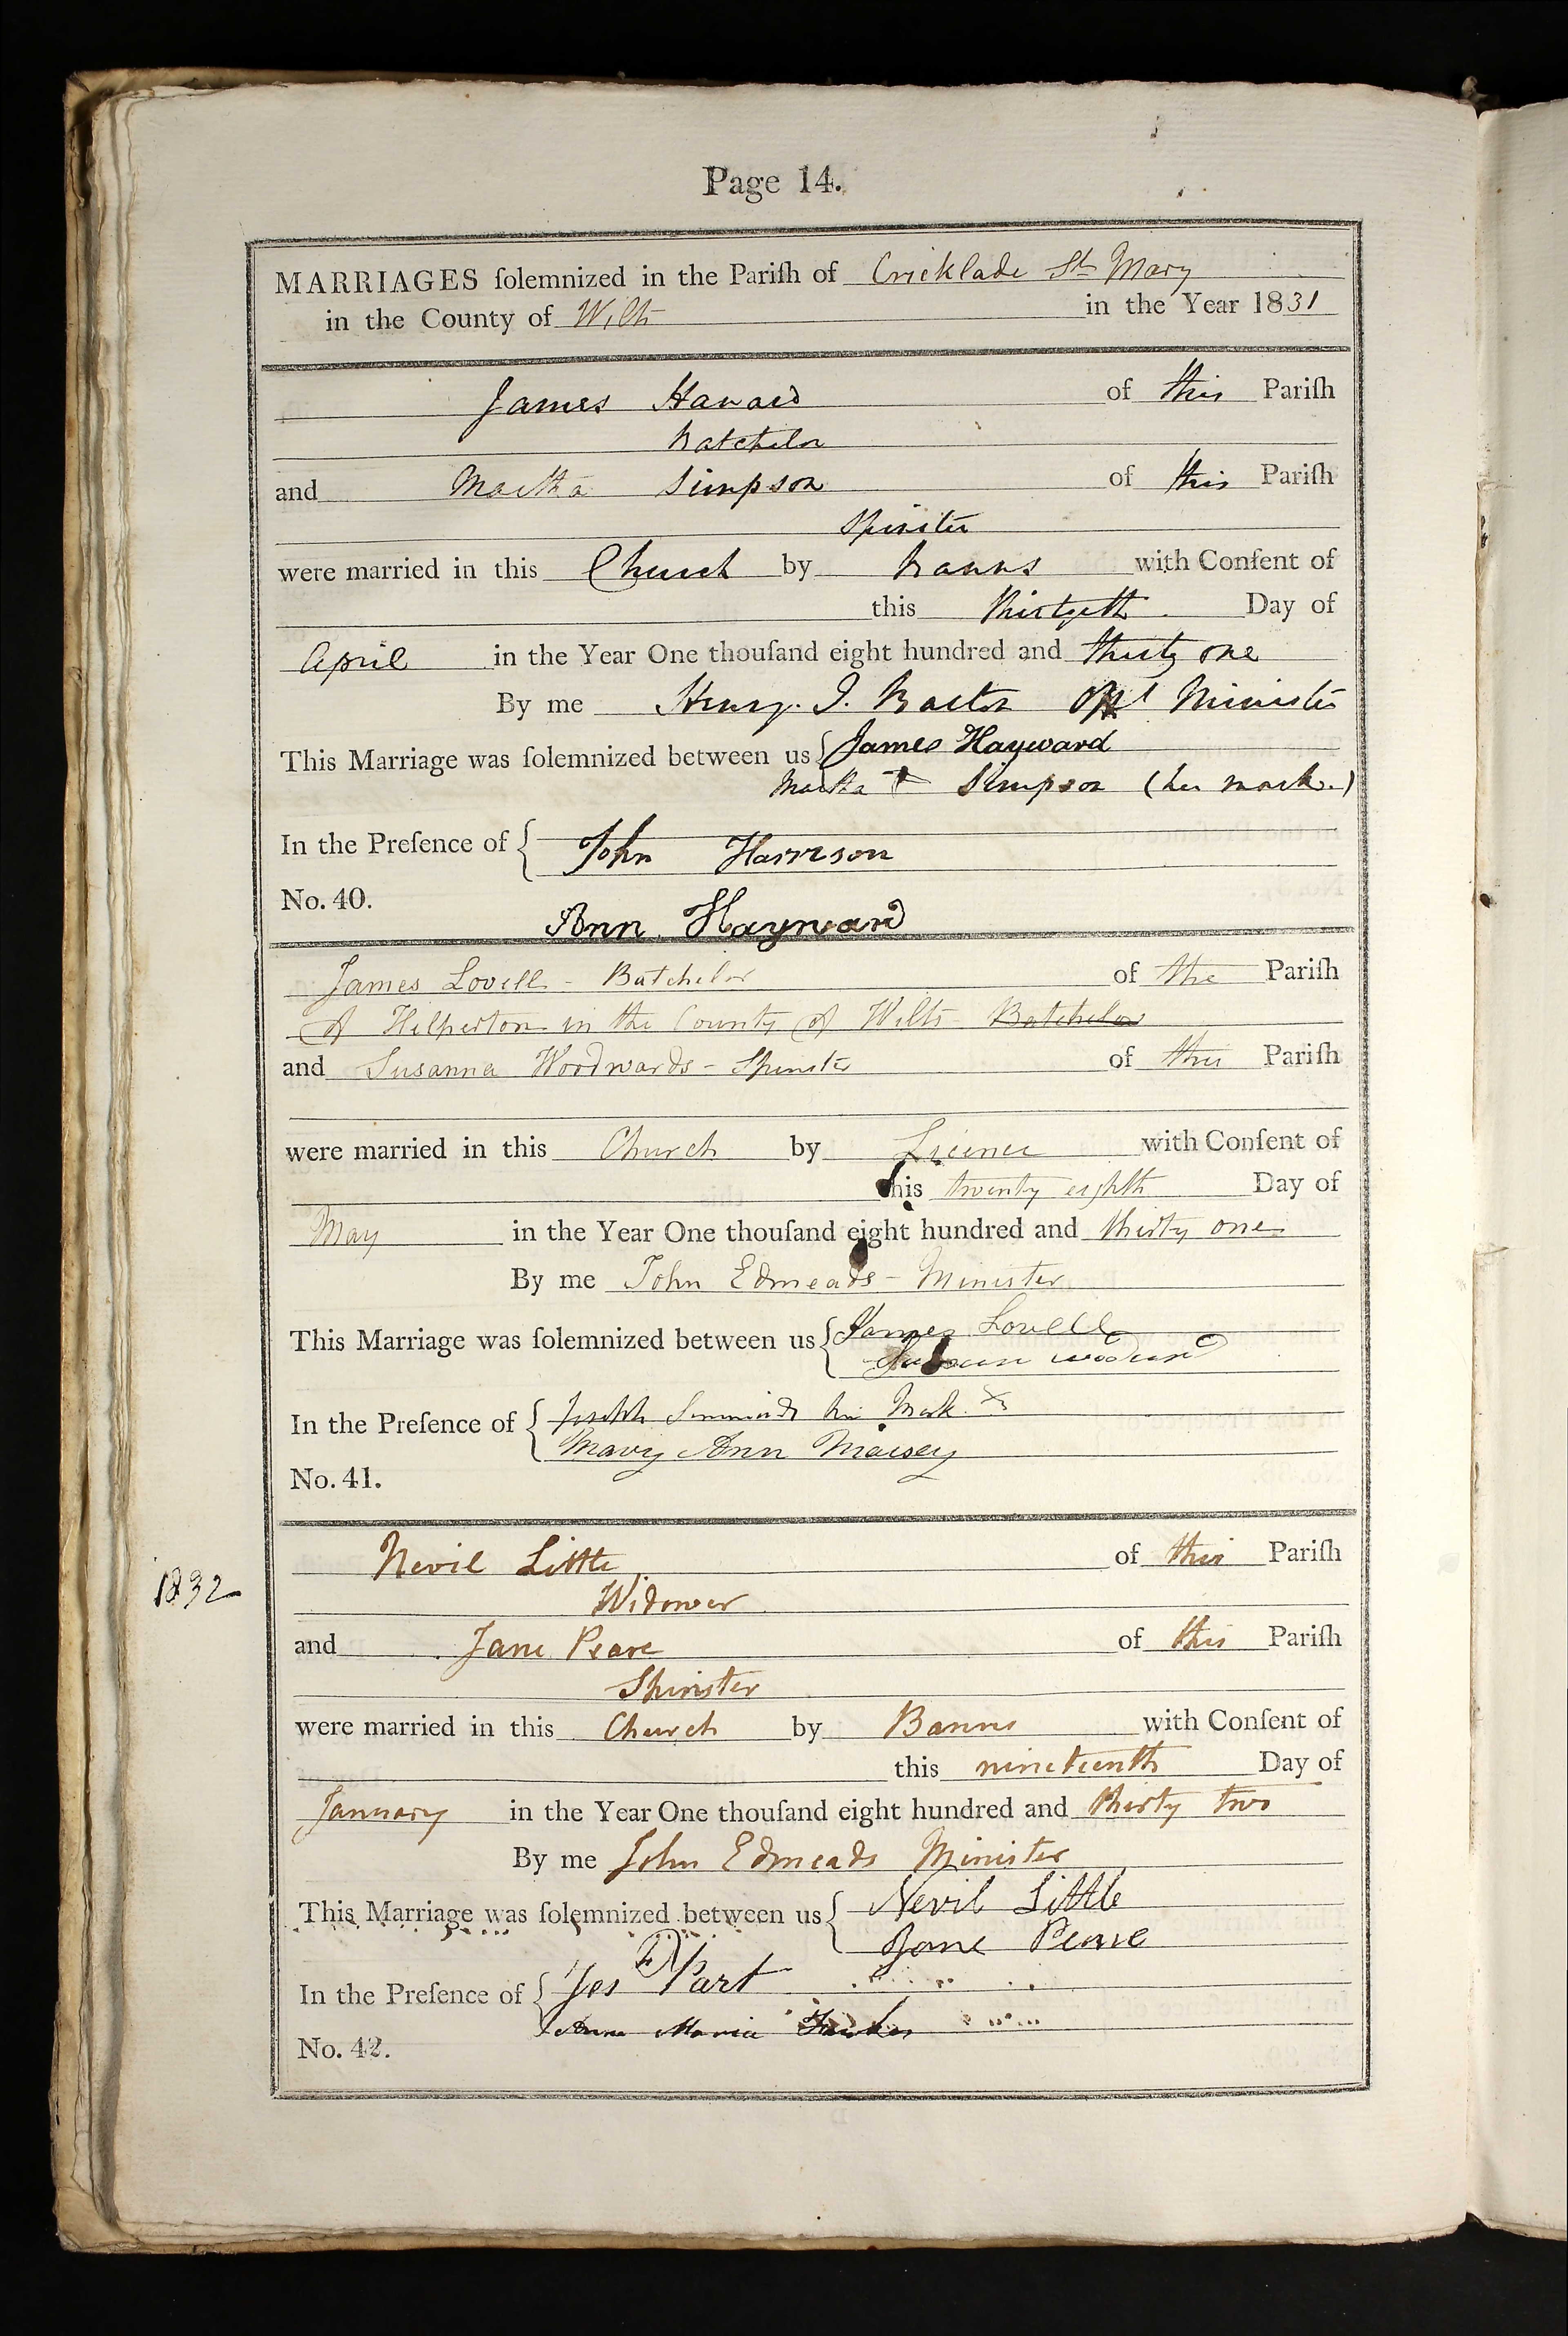 Page 14.
MARRIAGES ſolemnized in the Pariſh of Cricklade St Mary
in the County of Wilts in the Year 1831
James Haward of this Pariſh
Batchelor
and Martha Simpson of this Pariſh
Spinster
were married in this Church by Banns with Conſent of
this thirtyeth Day of
April in the Year One thouſand eight hundred and thirty one
By me Henry. I. Minister
This Marriage was ſolemnized between us James Hayward
Martha + Simpson (her mark.)
In the Preſence of John Harrison
No. 40.
Ann Hayward
James Lovell - Batchelor of the Pariſh
of Hilperton in the County of Wilts Batchelor
and Susanna Woodwards - Spinster of this Pariſh
were married in this Church by Licence with Conſent of
this twenty eighth Day of
May in the Year One thouſand eight hundred and thirty one
By me John Edmeads - Minister
This Marriage was ſolemnized between us James Lovell
In the Preſence of Joseph his Mark X
Mary Ann Maisey
No. 41.
1832
Nevil Little of this Pariſh
Widower
and Jane Peare of this Pariſh
Spinster
were married in this Church by Banns with Conſent of
this nineteenth Day of
January in the Year One thouſand eight hundred and thirty two
By me John Edmeads Minister
This Marriage was ſolemnized between us Nevil Little
Jane
In the Preſence of Part
Anna Maria
No. 42.